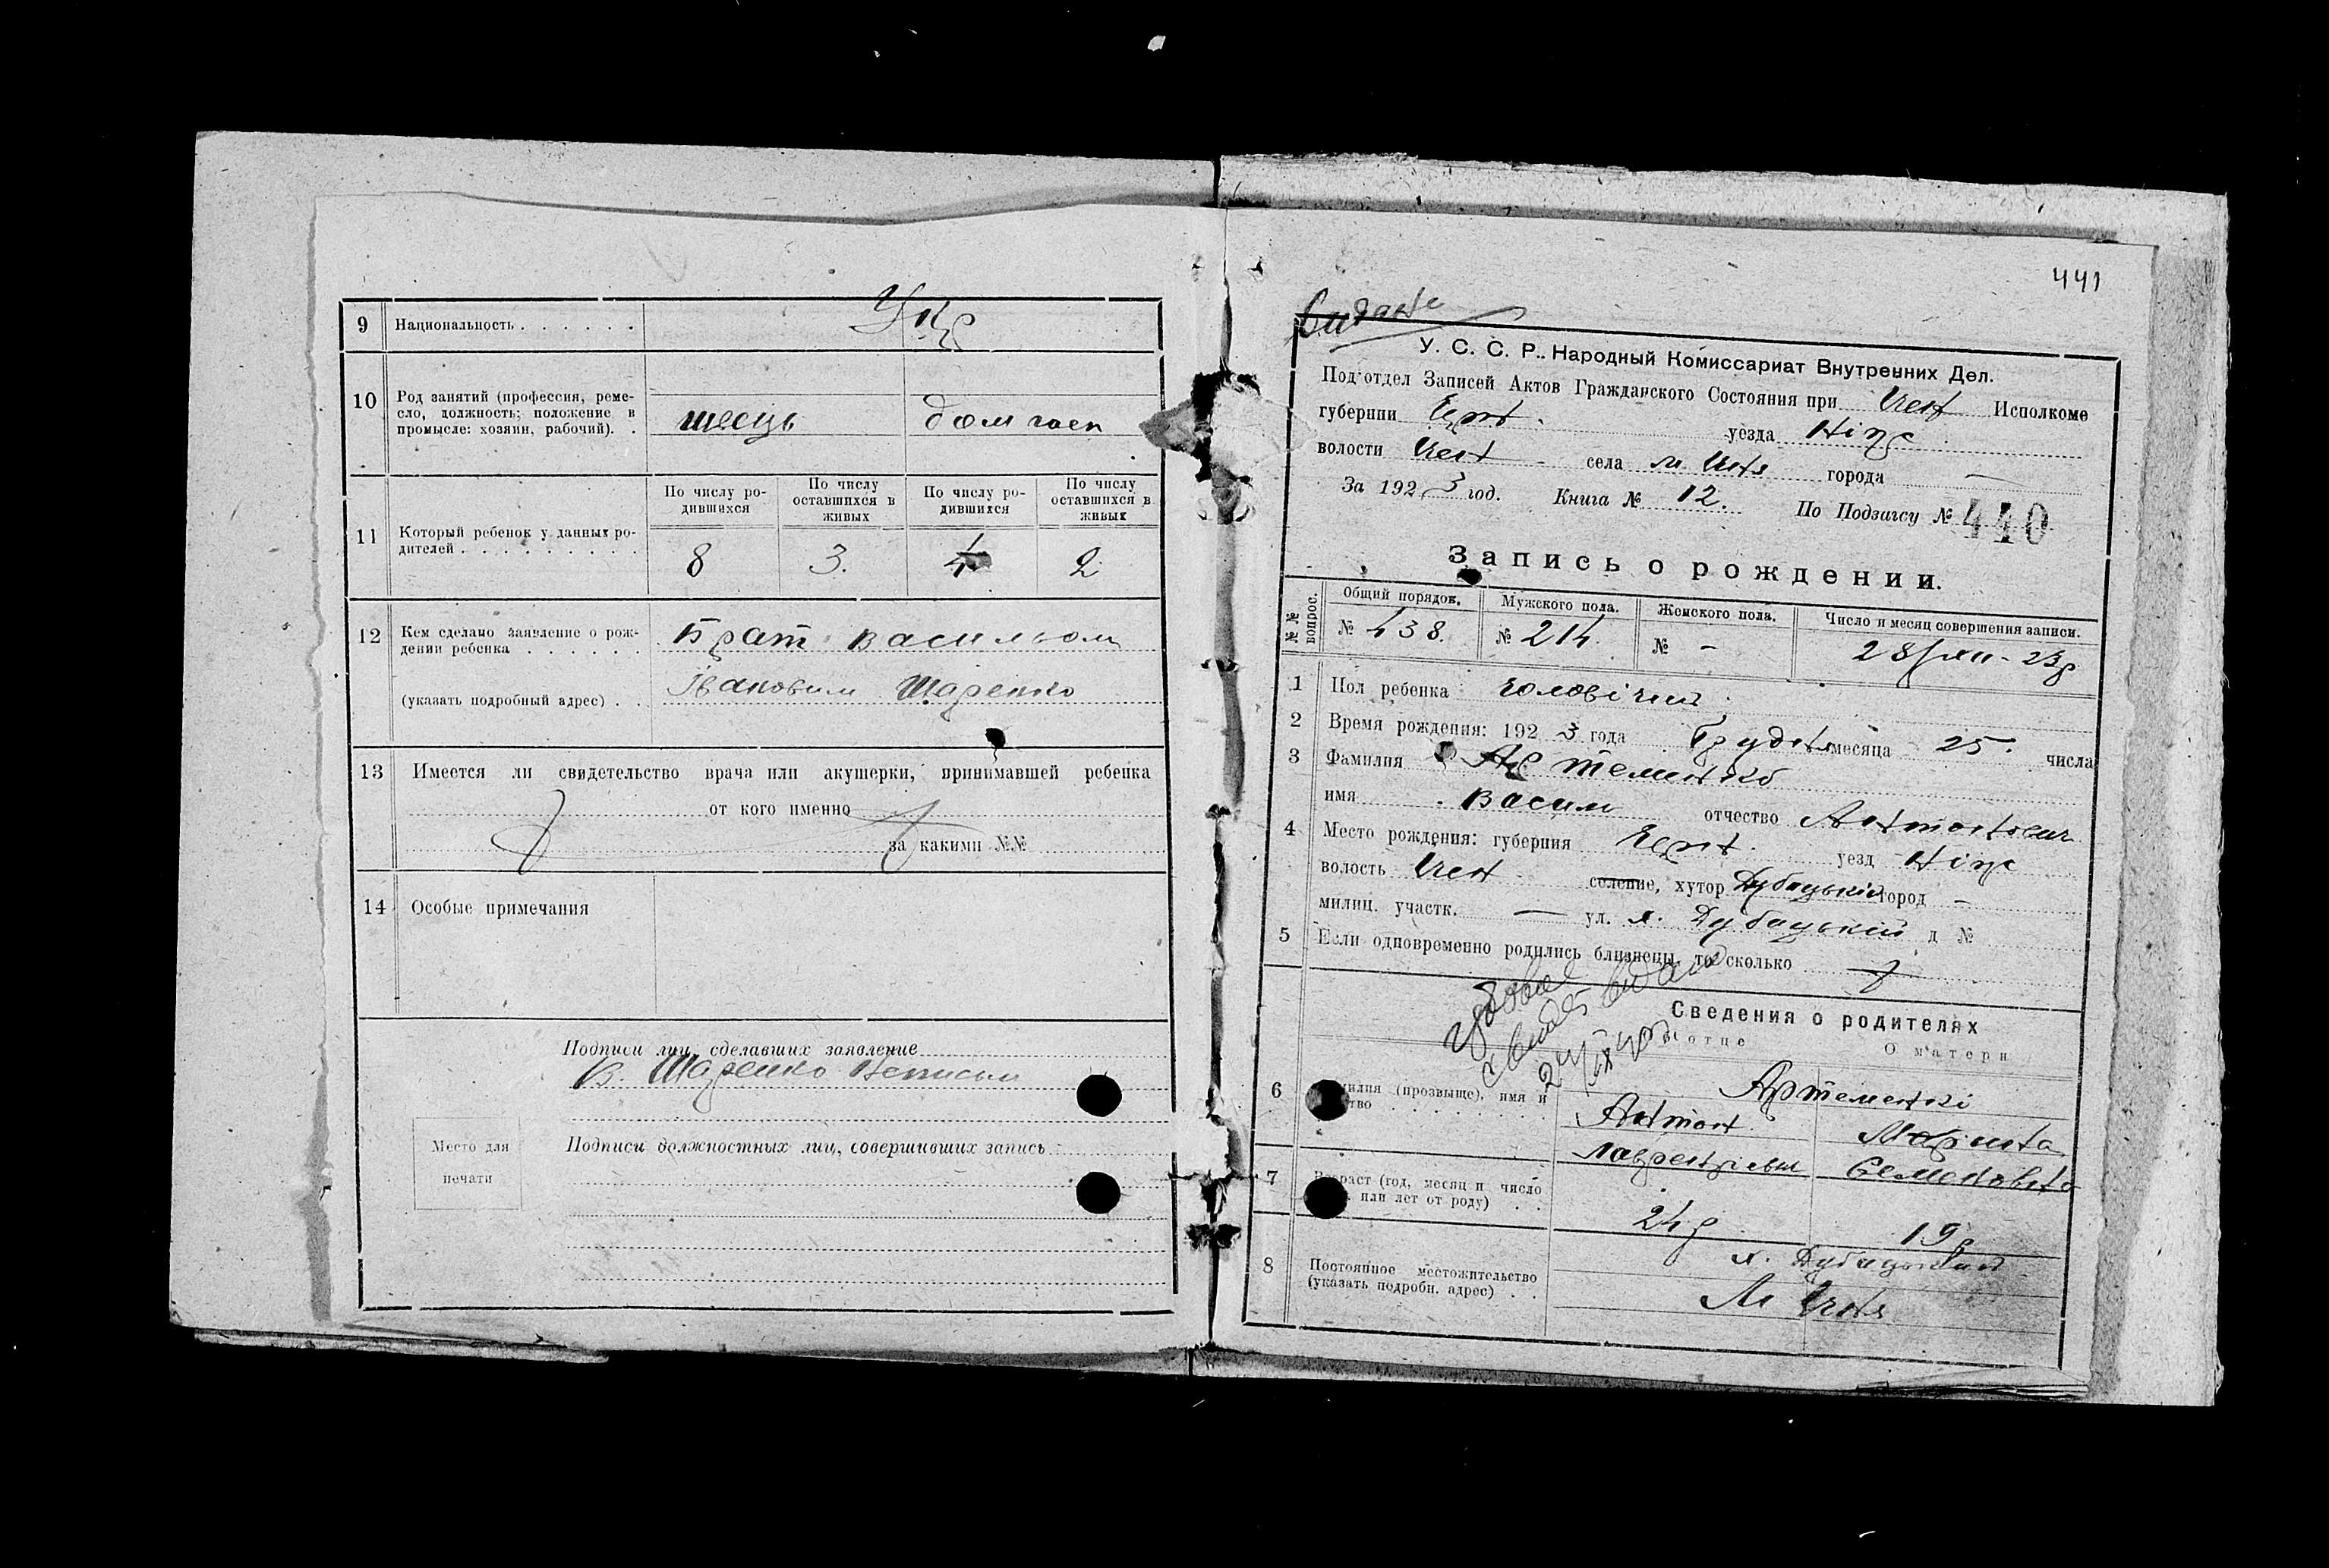 9 Национальность . . . . . . Укр
10 Род занятий (профессия, реме-
сло, должность; положение в
промысле: хозяин, рабочий). .
швець дом госп
11 Который ребенок у данных ро-
дителей . . . . . . . . .
По числу ро-
дившихся
По числу
оставшихся в
живых
По числу ро-
дившихся
По числу
оставшихся в
живых
8 3. 4 2
12 Кем сделано заявление о рож-
дении ребенка . . . . . .
(указать подробный адрес) . .
Брат
Івановим Шаренко
13 Имеется ли свидетельство врача или акушерки, принимавшей ребенка
от кого именно
за какими №№
14 Особые примечания
Подписи лиц, сделавших заявление
В. Шаренко
Место для
печати
Подписи должностных лиц, совершивших запись
441
У. С. С. Р.. Народный Комиссариат Внутренних Дел.
Под'отдел Записей Актов Гражданского Состояния при Ичен Исполкоме
губернии Черн. уезда Ніж
волости Ичен села м. Ичня города —
За 1923 год. Книга № 12. По Подзагсу № 440
Запись о рождении.
№№ вопрос.
Общий порядок. Мужского пола. Женского пола. Число и месяц совершения записи.
№ 438. № 214. № - 28/XII-23р
1 Пол ребенка чоловічий
2 Время рождения: 1923 года Грудня месяца 25. числа
3 Фамилия Артеменко
имя Васил отчество Антонович
4 Место рождения: губерния Черн. уезд Ніж
волость Ичен. селение, хутор Дубацький город —
милиц. участк. — ул. х. Дубацький д №
5 Если одновременно родились близнецы, то сколько
Сведения о родителях
О отце О матери
6 Фамилия (прозвище), имя и
отчество . . . . . . . .
Артеменкі
Антон Марина
Лаврентієвич Семеновна
7 Возраст (год, месяц и число
или лет от роду) . .
24р 19р
8 Постоянное местожительство
(указать подробн. адрес) . .
х. Дубацький
М Ичня